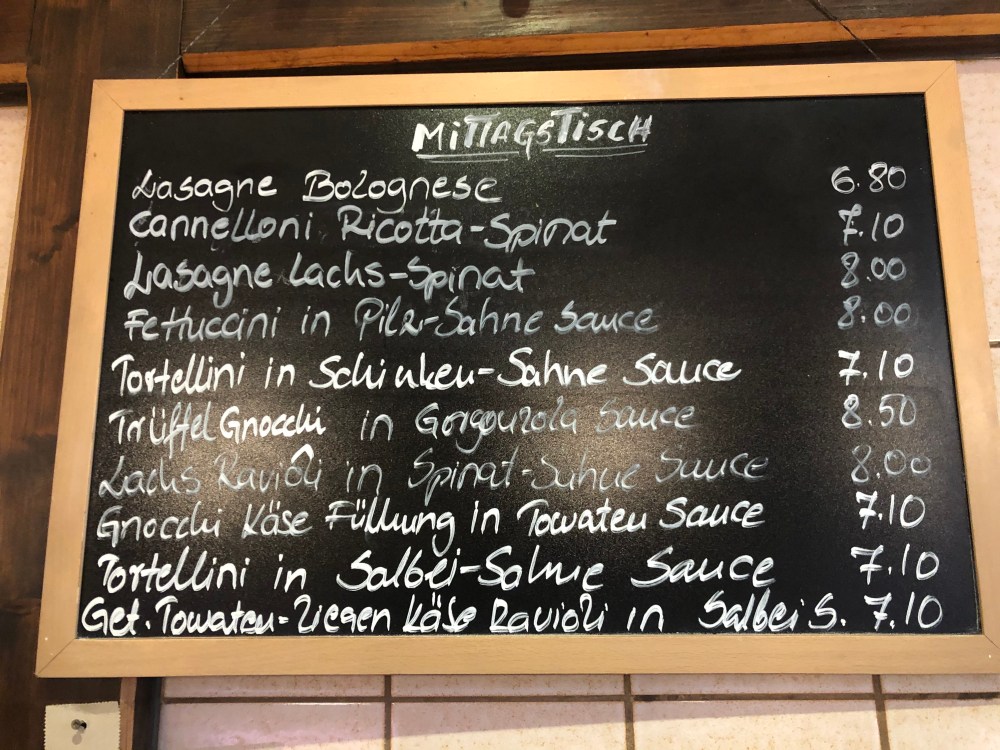 MiTTAGSTiSCH
Lasagne Bolognese 6.80
Cannelloni Ricotta-Spinat 7.10
Lasagne Lachs-Spinat 8.00
Fettuccini in Pilz-Sahne Sauce 8.00
Tortellini in Schinken-Sahne Sauce 7.10
Trüffel Gnocchi in Gorgonzola Sauce 8.50
Lachs Ravioli in Spinat-Sahne Sauce 8.00
Gnocchi Käse Füllung in Tomaten Sauce 7.10
Tortellini in Salbei-Sahne Sauce 7.10
Get. Tomaten-Ziegen Käse Ravioli in Salbei S. 7.10